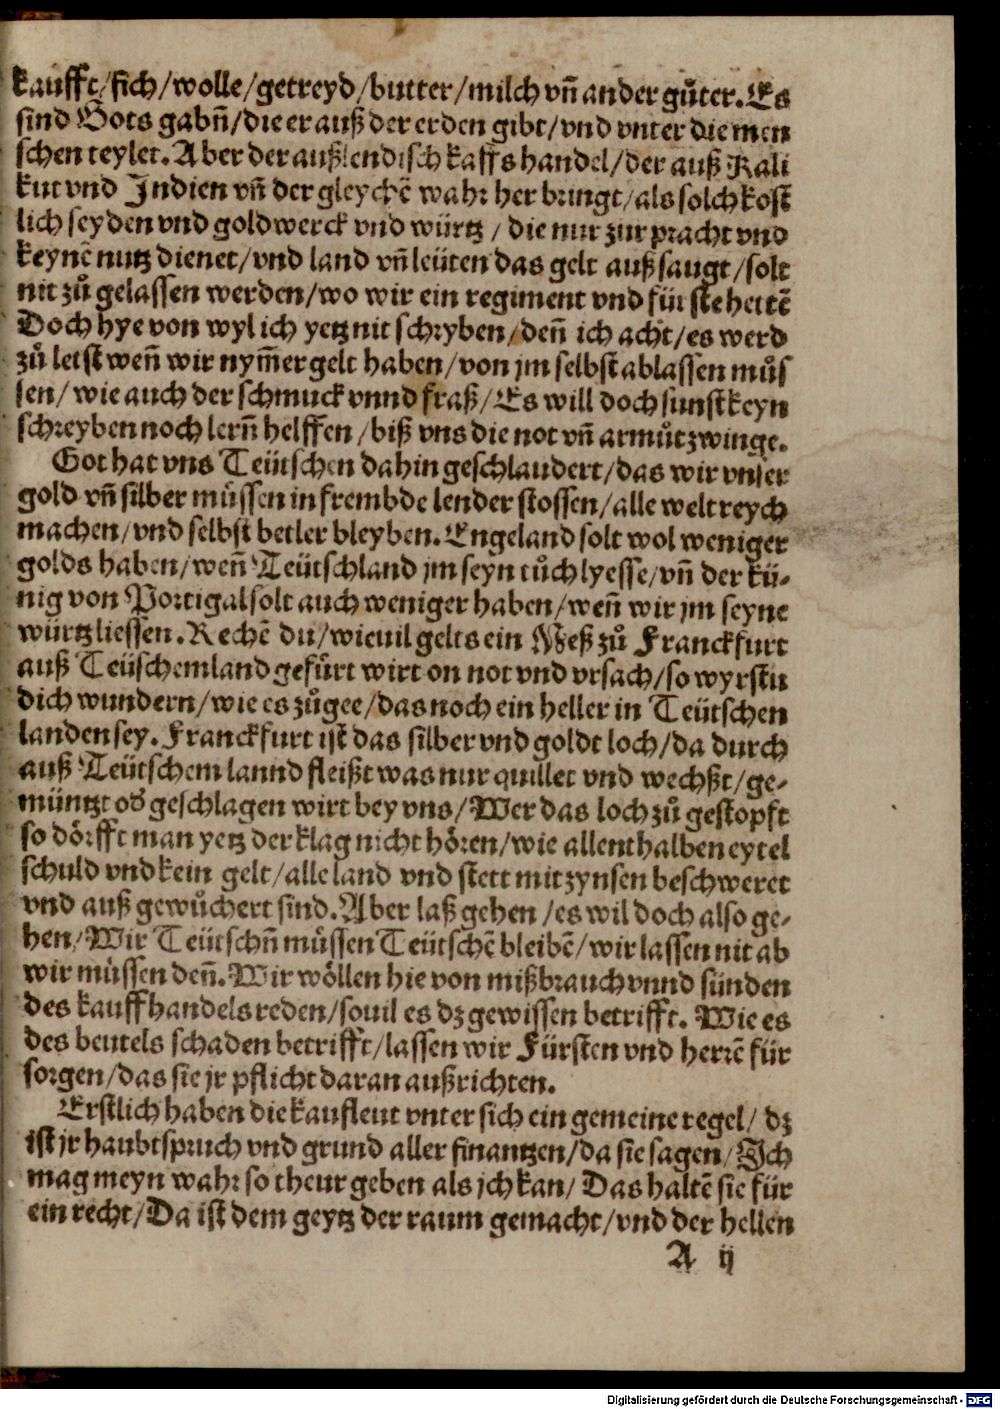 kaufft/fich/wolle/getreyd/butter/milch vn̄ ander gůter. Es
sind Gots gabn̄/die er auß der erden gibt/vnd vnter die men
schen teylet. Aber der außlendisch kaffs handel/der auß Kali
kut vnd Indien vn̄ der gleychē wahr her bringt/als solch kost
lich seyden vnd goldwerck vnd würtz/die nur zur pracht vnd
keynē nutz dienet/vnd land vn̄ leüten das gelt auß saugt/solt
nit zů gelassen werden/wo wir ein regiment vnd fürste hettē
Doch hye von wyl ich yetz nit schryben/den̄ ich acht/es werd
zů letst wen̄ wir nym̄er gelt haben/von jm selbst ablassen můs
sen/wie auch der schmuck vnnd fraß/Es will doch sunst keyn
schreyben noch lern̄ helffen/biß vns die not vn̄ armůt zwinge.
Got hat vns Teütschen dahin geschlaudert/das wir vnser
gold vn̄ silber müssen in frembde lender stossen/alle welt reych
machen/vnd selbst betler bleyben. Engeland solt wol weniger
golds haben/wen̄ Teütschland jm seyn tůch lyesse/vn̄ der kü-
nig von Portigal solt auch weniger haben/wen̄ wir jm seyne
würtz liessen. Rechē du/wieuil gelts ein Meß zů Franckfurt
auß Teüschemland gefůrt wirt on not vnd vrsach/so wyrstu
dich wundern/wie es zůgee/das noch ein heller in Teütschen
landen sey. Franckfurt ist das silber vnd goldt loch/da durch
auß Teütschem lannd fleißt was nur quillet vnd wechßt/ge-
müntzt oď geschlagen wirt bey vns/Wer das loch zů gestopft
so dörfft man yetz der klag nicht hören/wie allenthalben eytel
schuld vnd kein gelt/alle land vnd stett mit zynsen beschweret
vnd auß gewůchert sind. Aber laß gehen/es wil doch also ge-
hen/Wir Teütschn̄ müssen Teütschē bleibē/wir lassen nit ab
wir müssen den̄. Wir wöllen hie von mißbrauch vnnd sünden
des kauffhandels reden/souil es dz gewissen betrifft. Wie es
des beutels schaden betrifft/lassen wir Fürsten vnd herrē für
sorgen/das sie jr pflicht daran außrichten.
Erstlich haben die kaufleut vnter sich ein gemeine regel/dz
ist jr haubtspruch vnd grund aller finantzen/da sie sagen/Ich
mag meyn wahr so theur geben als jch kan/Das haltē sie für
ein recht/Da ist dem geytz der raum gemacht/vnd der hellen
A ij
Digitalisierung gefördert durch die Deutsche Forschungsgemeinschaft - DFG